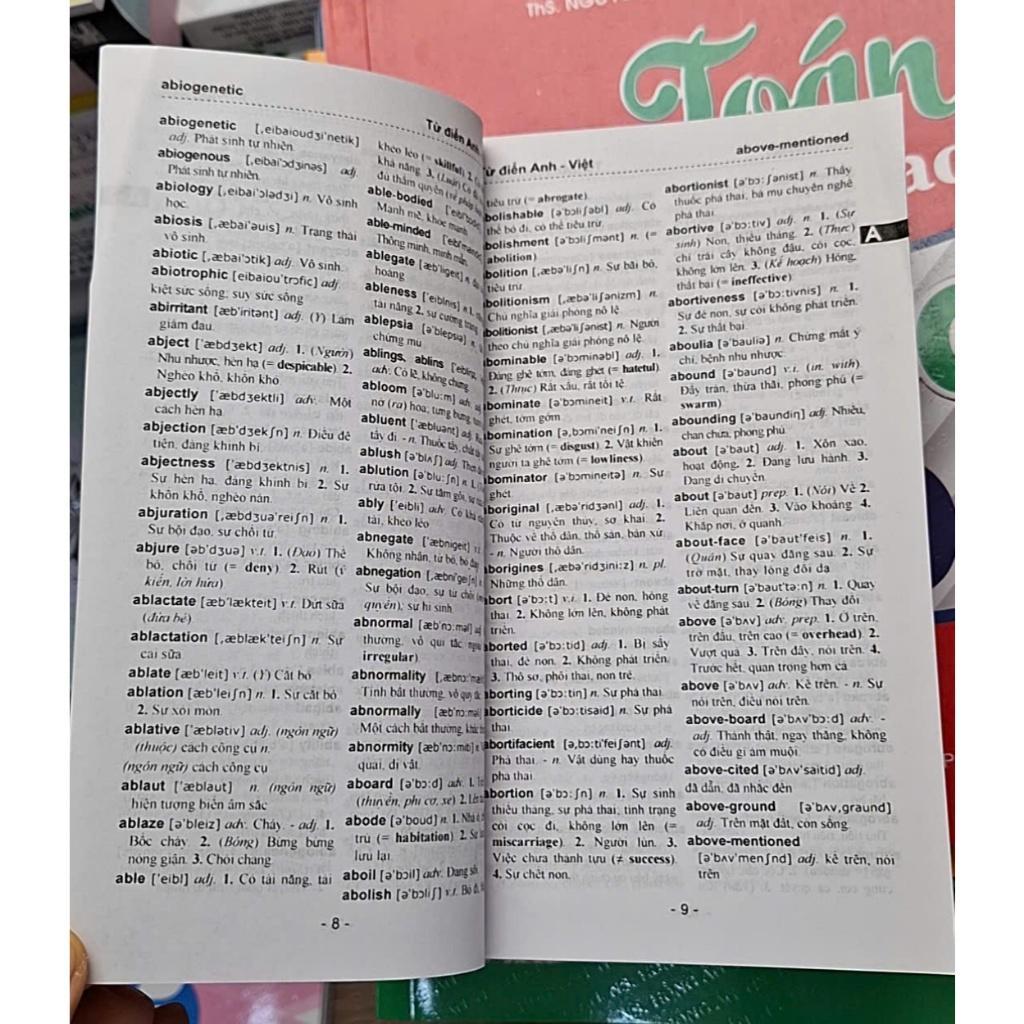 ThS.
Toán
abiogenetic
Từ điển Anh
abiogenetic [,eibaioudʒi'netik]
adj. Phát sinh tự nhiên.
abiogenous [,eibai'ɔdʒinəs] adj.
Phát sinh tự nhiên.
abiology [,eibai'ɔlədʒi] n. Vô sinh
học.
abiosis [,æbai'əuis] n. Trạng thái
vô sinh.
abiotic [,æbai'ɔtik] adj. Vô sinh.
abiotrophic [eibaiou'trɔfic] adj.
kiệt sức sống; suy sức sống
abirritant [æb'iritənt] adj. (Y) Làm
giảm đau.
abject ['æbdʒekt] adj. 1. (Người)
Nhu nhược, hèn hạ (= despicable) 2.
Nghèo khổ, khốn khổ
abjectly ['æbdʒektli] adv. Một
cách hèn hạ.
abjection [æb'dʒekʃn] n. Điều đê
tiện, đáng khinh bỉ.
abjectness ['æbdʒektnis] n. 1.
Sự hèn hạ, đáng khinh bỉ. 2. Sự
khốn khổ, nghèo nàn.
abjuration [,æbdʒuə'reiʃn] n. 1.
Sự bội đạo, sự chối từ.
abjure [əb'dʒuə] v.t. 1. (Đạo) Thề
bỏ, chối từ (= deny) 2. Rút (ý
kiến, lời hứa)
ablactate [æb'lækteit] v.t. Dứt sữa
(đứa bé)
ablactation [,æblæk'teiʃn] n. Sự
cai sữa
ablate [æb'leit] v.t. (Y) Cắt bỏ
ablation [æb'leiʃn] n. 1. Sự cắt bỏ
2. Sự xói mòn.
ablative ['æblətiv] adj. (ngôn ngữ)
(thuộc) cách công cụ n.
(ngôn ngữ) cách công cụ
ablaut ['æblaut] n. (ngôn ngữ)
hiện tượng biến âm sắc
ablaze [ə'bleiz] adv. Cháy. - adj. 1.
Bốc cháy 2. (Bóng) Bừng bừng
nóng giận. 3. Chói chang.
able ['eibl] adj. 1. Có tài năng, tài
khéo léo (= skillful) 2.
khả năng. 3. (Luật) Có
đủ thẩm quyền
able-bodied
Mạnh mẽ, khỏe mạnh
able-minded
Thông minh, minh mẫn.
ablegate [æb'ligeit] n.
hoàng
ableness ['eiblnis] n. 1.
tài năng 2. sự cường tráng
ablepsia [ə'blepsiə] n.
chứng mù
ablings, ablins
adv. Có lẽ, không chừng.
abloom [ə'blu:m]
nở (ra) hoa; tưng bừng,
abluent ['æbluənt] adj.
tẩy đi - n. Thuốc tẩy,
ablush [ə'blʌʃ] adj.
ablution [ə'blu:ʃn] n. 1.
rửa tội. 2. Sự tắm gội,
ably ['eibli] adv. Có khả
tài, khéo léo
abnegate ['æbnigeit] v.t.
Không nhận, từ bỏ,
abnegation [,æbni'geiʃn]
Sự bội đạo, sự từ chối
quyền); sự hi sinh
abnormal [æb'nɔ:məl] adj.
thường, vô qui tắc,
irregular)
abnormality
Tính bất thường, vô quy tắc
abnormally [æb'nɔ:məli]
Một cách bất thường,
abnormity [æb'nɔ:miti] n.
quái, dị vật.
aboard [ə'bɔ:d] adv. 1.
(thuyền, phi cơ, xe) 2.
abode [ə'boud] n. 1. Nhà
trú (= habitation). 2. Sự
lưu lại.
aboil [ə'bɔil] adv. Đang sôi.
abolish [ə'bɔliʃ] v.t. Bỏ đi,
- 8 -
Từ điển Anh - Việt
above-mentioned
tiêu trừ (= abrogate).
bolishable [ə'bɔliʃəbl] adj. Có
thể bỏ đi, có thể tiêu trừ.
bolishment [ə'bɔliʃmənt] n. (=
abolition)
bolition [,æbə'liʃn] n. Sự bãi bỏ,
tiêu trừ.
bolitionism [,æbə'liʃənizm] n.
Chủ nghĩa giải phóng nô lệ.
bolitionist [,æbə'liʃənist] n. Người
theo chủ nghĩa giải phóng nô lệ.
bominable [ə'bɔminəbl] adj. 1.
Đáng ghê tởm, đáng ghét (= hateful).
2. (Thực) Rất xấu, rất tồi tệ.
bominate [ə'bɔmineit] v.t. Rất
ghét, tởm gớm.
bomination [ə,bɔmi'neiʃn] n. 1.
Sự ghê tởm (= disgust). 2. Vật khiến
người ta ghê tởm (= lowliness).
bominator [ə'bɔmineitə] n. Sự
ghét.
aboriginal [,æbə'ridʒənl] adj. 1.
Có từ nguyên thủy, sơ khai. 2.
Thuộc về thổ dân, thổ sản, bản xứ.
- n. Người thổ dân.
aborigines [,æbə'ridʒini:z] n. pl.
Những thổ dân.
abort [ə'bɔ:t] v.i. 1. Đẻ non, hỏng
thai. 2. Không lớn lên, không phát
triển.
aborted [ə'bɔ:tid] adj. 1. Bị sẩy
thai, đẻ non. 2. Không phát triển.
3. Thô sơ, phôi thai, non trẻ.
aborting [ə'bɔ:tin] n. Sự phá thai.
aborticide [ə'bɔ:tisaid] n. Sự phá
thai.
abortifacient [ə,bɔ:ti'feiʃənt] adj.
Phá thai. - n. Vật dùng hay thuốc
phá thai.
abortion [ə'bɔ:ʃn] n. 1. Sự sinh
thiếu tháng, sự phá thai, tình trạng
còi cọc đi, không lớn lên (=
miscarriage). 2. Người lùn. 3.
Việc chưa thành tựu (≠ success).
4. Sự chết non.
abortionist [ə'bɔ:ʃənist] n. Thầy
thuốc phá thai, bà mụ chuyên nghề
phá thai.
abortive [ə'bɔ:tiv] adj. n. 1. (Sự
sinh) Non, thiếu tháng. 2. (Thực)
chỉ trái cây không đậu, còi cọc,
không lớn lên. 3. (Kế hoạch) Hỏng,
thất bại (= ineffective).
abortiveness [ə'bɔ:tivnis] n. 1.
Sự đẻ non, sự còi không phát triển.
2. Sự thất bại.
aboulia [ə'bauliə] n. Chứng mất ý
chí, bệnh nhu nhược.
abound [ə'baund] v.i. (in, with)
Đầy tràn, thừa thãi, phong phú (=
swarm)
abounding [ə'baundin] adj. Nhiều,
chan chứa, phong phú.
about [ə'baut] adj. 1. Xôn xao,
hoạt động. 2. Đang lưu hành. 3.
Đang di chuyển.
about [ə'baut] prep. 1. (Nói) Về 2.
Liên quan đến. 3. Vào khoảng 4.
Khắp nơi, ở quanh.
about-face [ə'baut'feis] n. 1.
(Quân) Sự quay đằng sau. 2. Sự
trở mặt, thay lòng đổi dạ
about-turn [ə'baut'tə:n] n. 1. Quay
về đằng sau. 2. (Bóng) Thay đổi
above [ə'bʌv] adv. prep. 1. Ở trên,
trên đầu, trên cao (= overhead). 2.
Vượt quá. 3. Trên đây, nói trên. 4.
Trước hết, quan trọng hơn cả.
above [ə'bʌv] adv. Kể trên. - n. Sự
nói trên, điều nói trên.
above-board [ə'bʌv'bɔ:d] adv. -
adj. Thành thật, ngay thẳng, không
có điều gì ám muội.
above-cited [ə'bʌv'saitid] adj.
đã dẫn, đã nhắc đến
above-ground [ə'bʌv,graund]
adj. Trên mặt đất, còn sống.
above-mentioned
[ə'bʌv'menʃnd] adj. kể trên, nói
trên
A
- 9 -